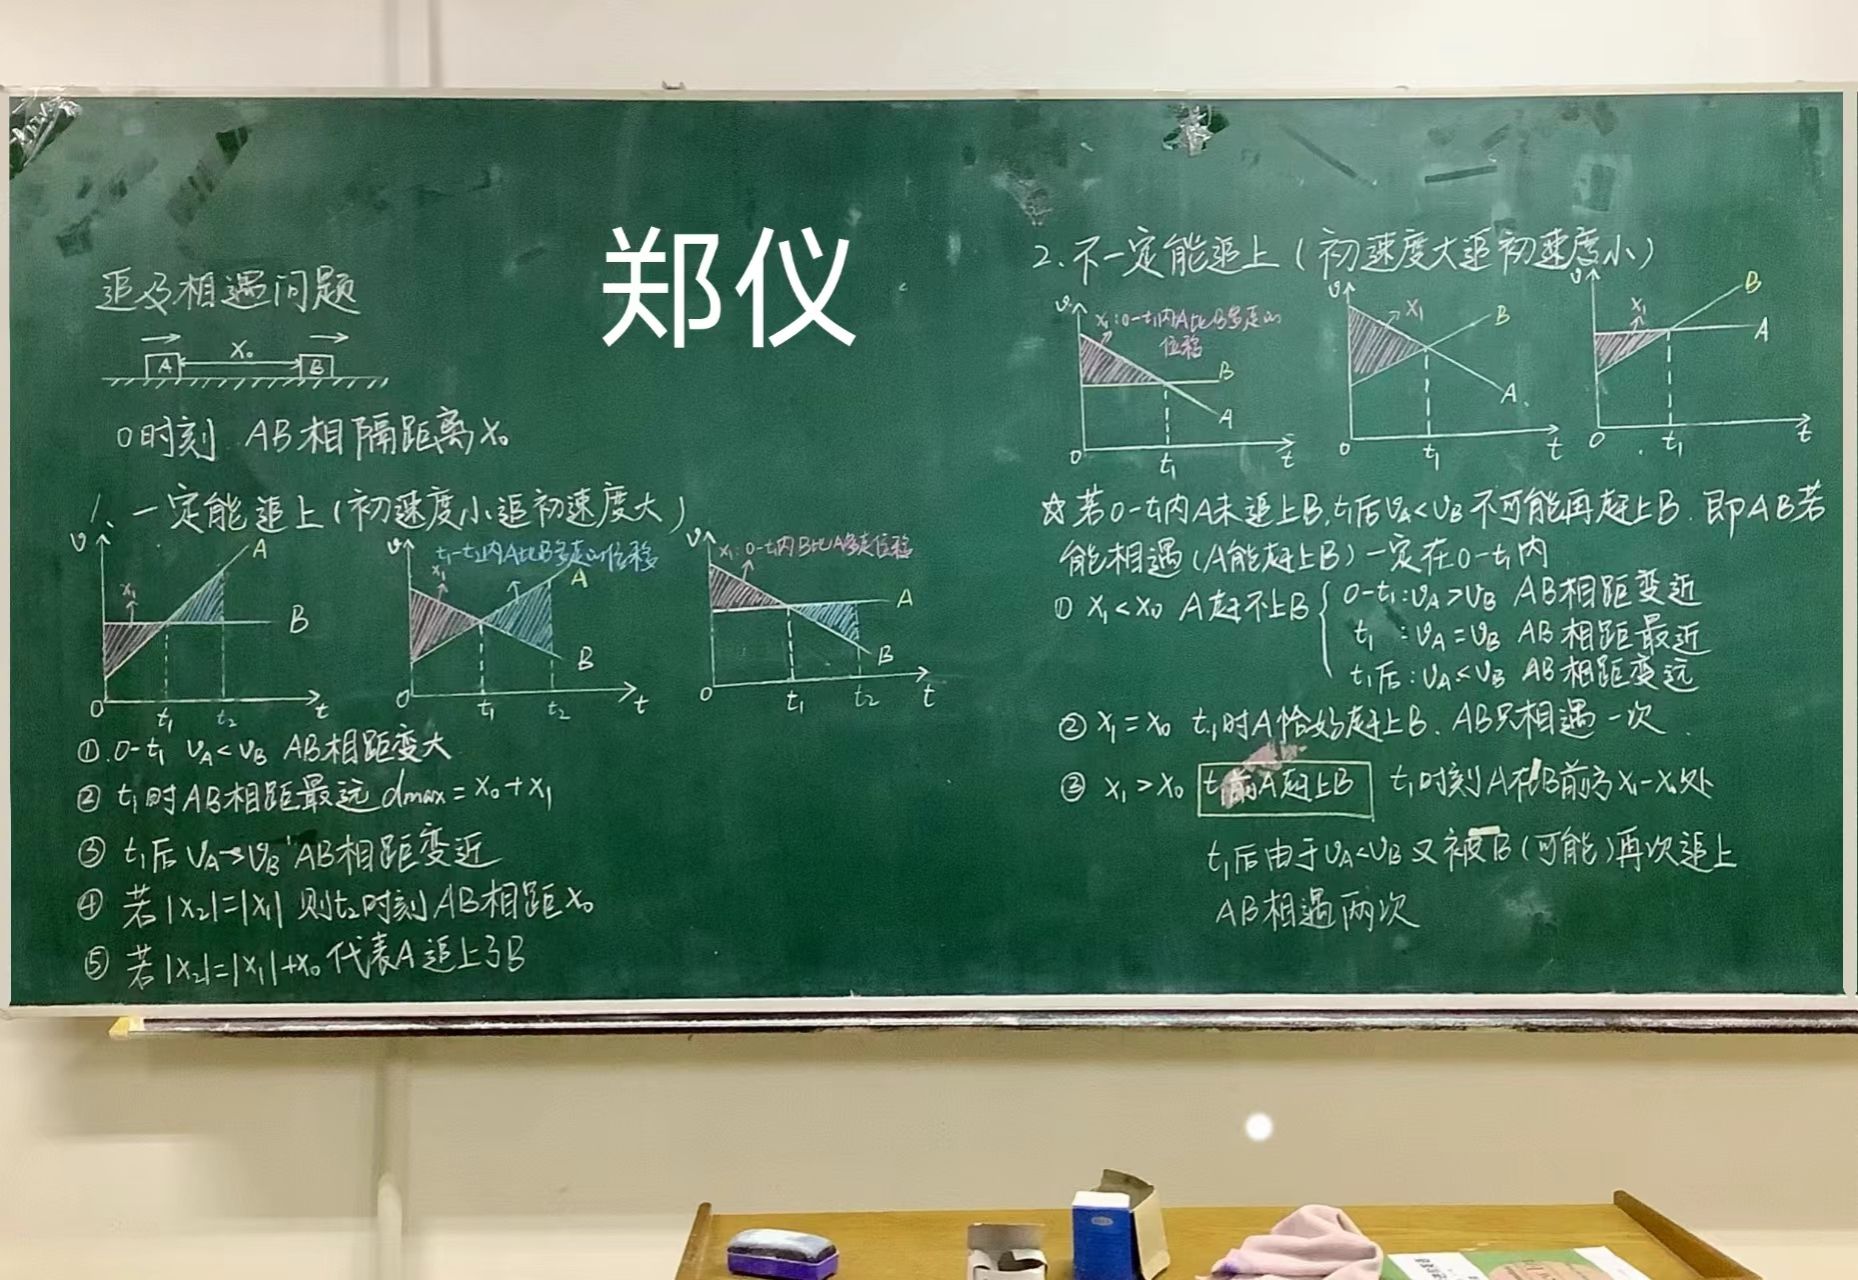 郑仪
追及相遇问题
A X₀ B
0时刻 AB相隔距离X₀
1、一定能追上(初速度小追初速度大)
v x₁ A B 0 t₁ t₂ t
v x₁ t₁-t₂内A比B多走的位移 A B 0 t₁ t₂ t
v x₁:0-t₁内B比A多走位移 A B 0 t₁ t₂ t
①.0-t₁ vA<vB AB相距变大
② t₁时AB相距最远 dmax=x₀+x₁
③ t₁后 vA>vB AB相距变近
④ 若|x₂|=|x₁| 则t₂时刻AB相距x₀
⑤ 若|x₂|=|x₁|+x₀ 代表A追上了B
2.不一定能追上(初速度大追初速度小)
v x₁:0-t₁内A比B多走的
位移
B A 0 t₁ t
v x₁ B A 0 t₁ t
v x₁ B A 0 t₁ t
☆若0-t₁内A未追上B,t₁后vA<vB不可能再赶上B.即AB若
能相遇(A能赶上B)一定在0-t₁内
① x₁<x₀ A赶不上B
0-t₁:vA>vB AB相距变近
t₁:vA=vB AB相距最近
t₁后:vA<vB AB相距变远
② x₁=x₀ t₁时A恰好赶上B.AB只相遇一次
③ x₁>x₀ t₁前A赶上B t₁时刻A在B前方x₁-x₀处
t₁后由于vA<vB又被B(可能)再次追上
AB相遇两次